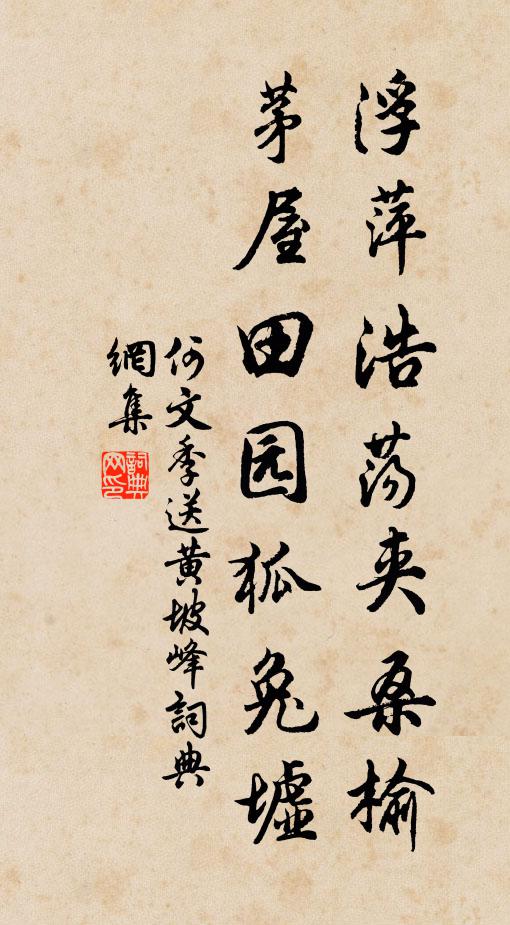 浮萍浩荡夹桑榆
茅屋田园狐兔墟
何文季送黄坡峰詞典
網集
詞典網印